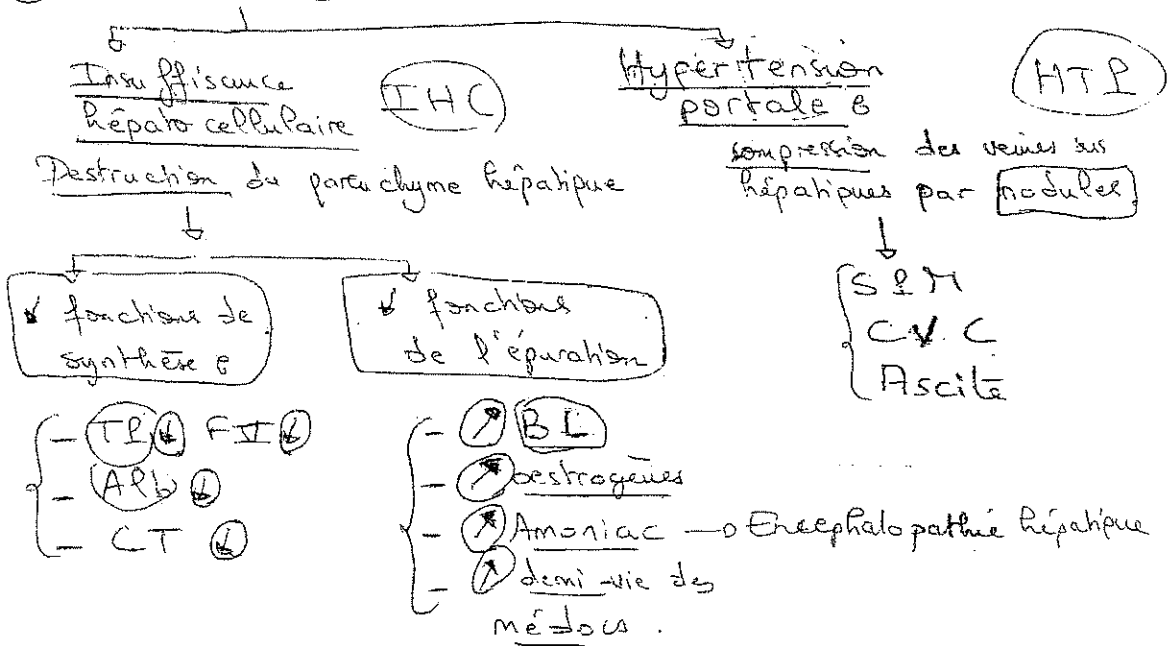 Insuffisance
hépato cellulaire
IHC
Destruction du parenchyme hépatique
↙ fonctions de
synthèse :
- TP ↓ FV ↓
- Alb ↓
- CT ↓
↙ fonctions
de l'épuration
- ↗ BL
- ↗ oestrogènes
- ↗ Amoniac → Encephalopathie hépatique
- ↗ demi-vie des
médocs.
Hypertension
portale :
HTP
compression des veines sus
hépatiques par nodules
SPM
C.V.C
Ascite